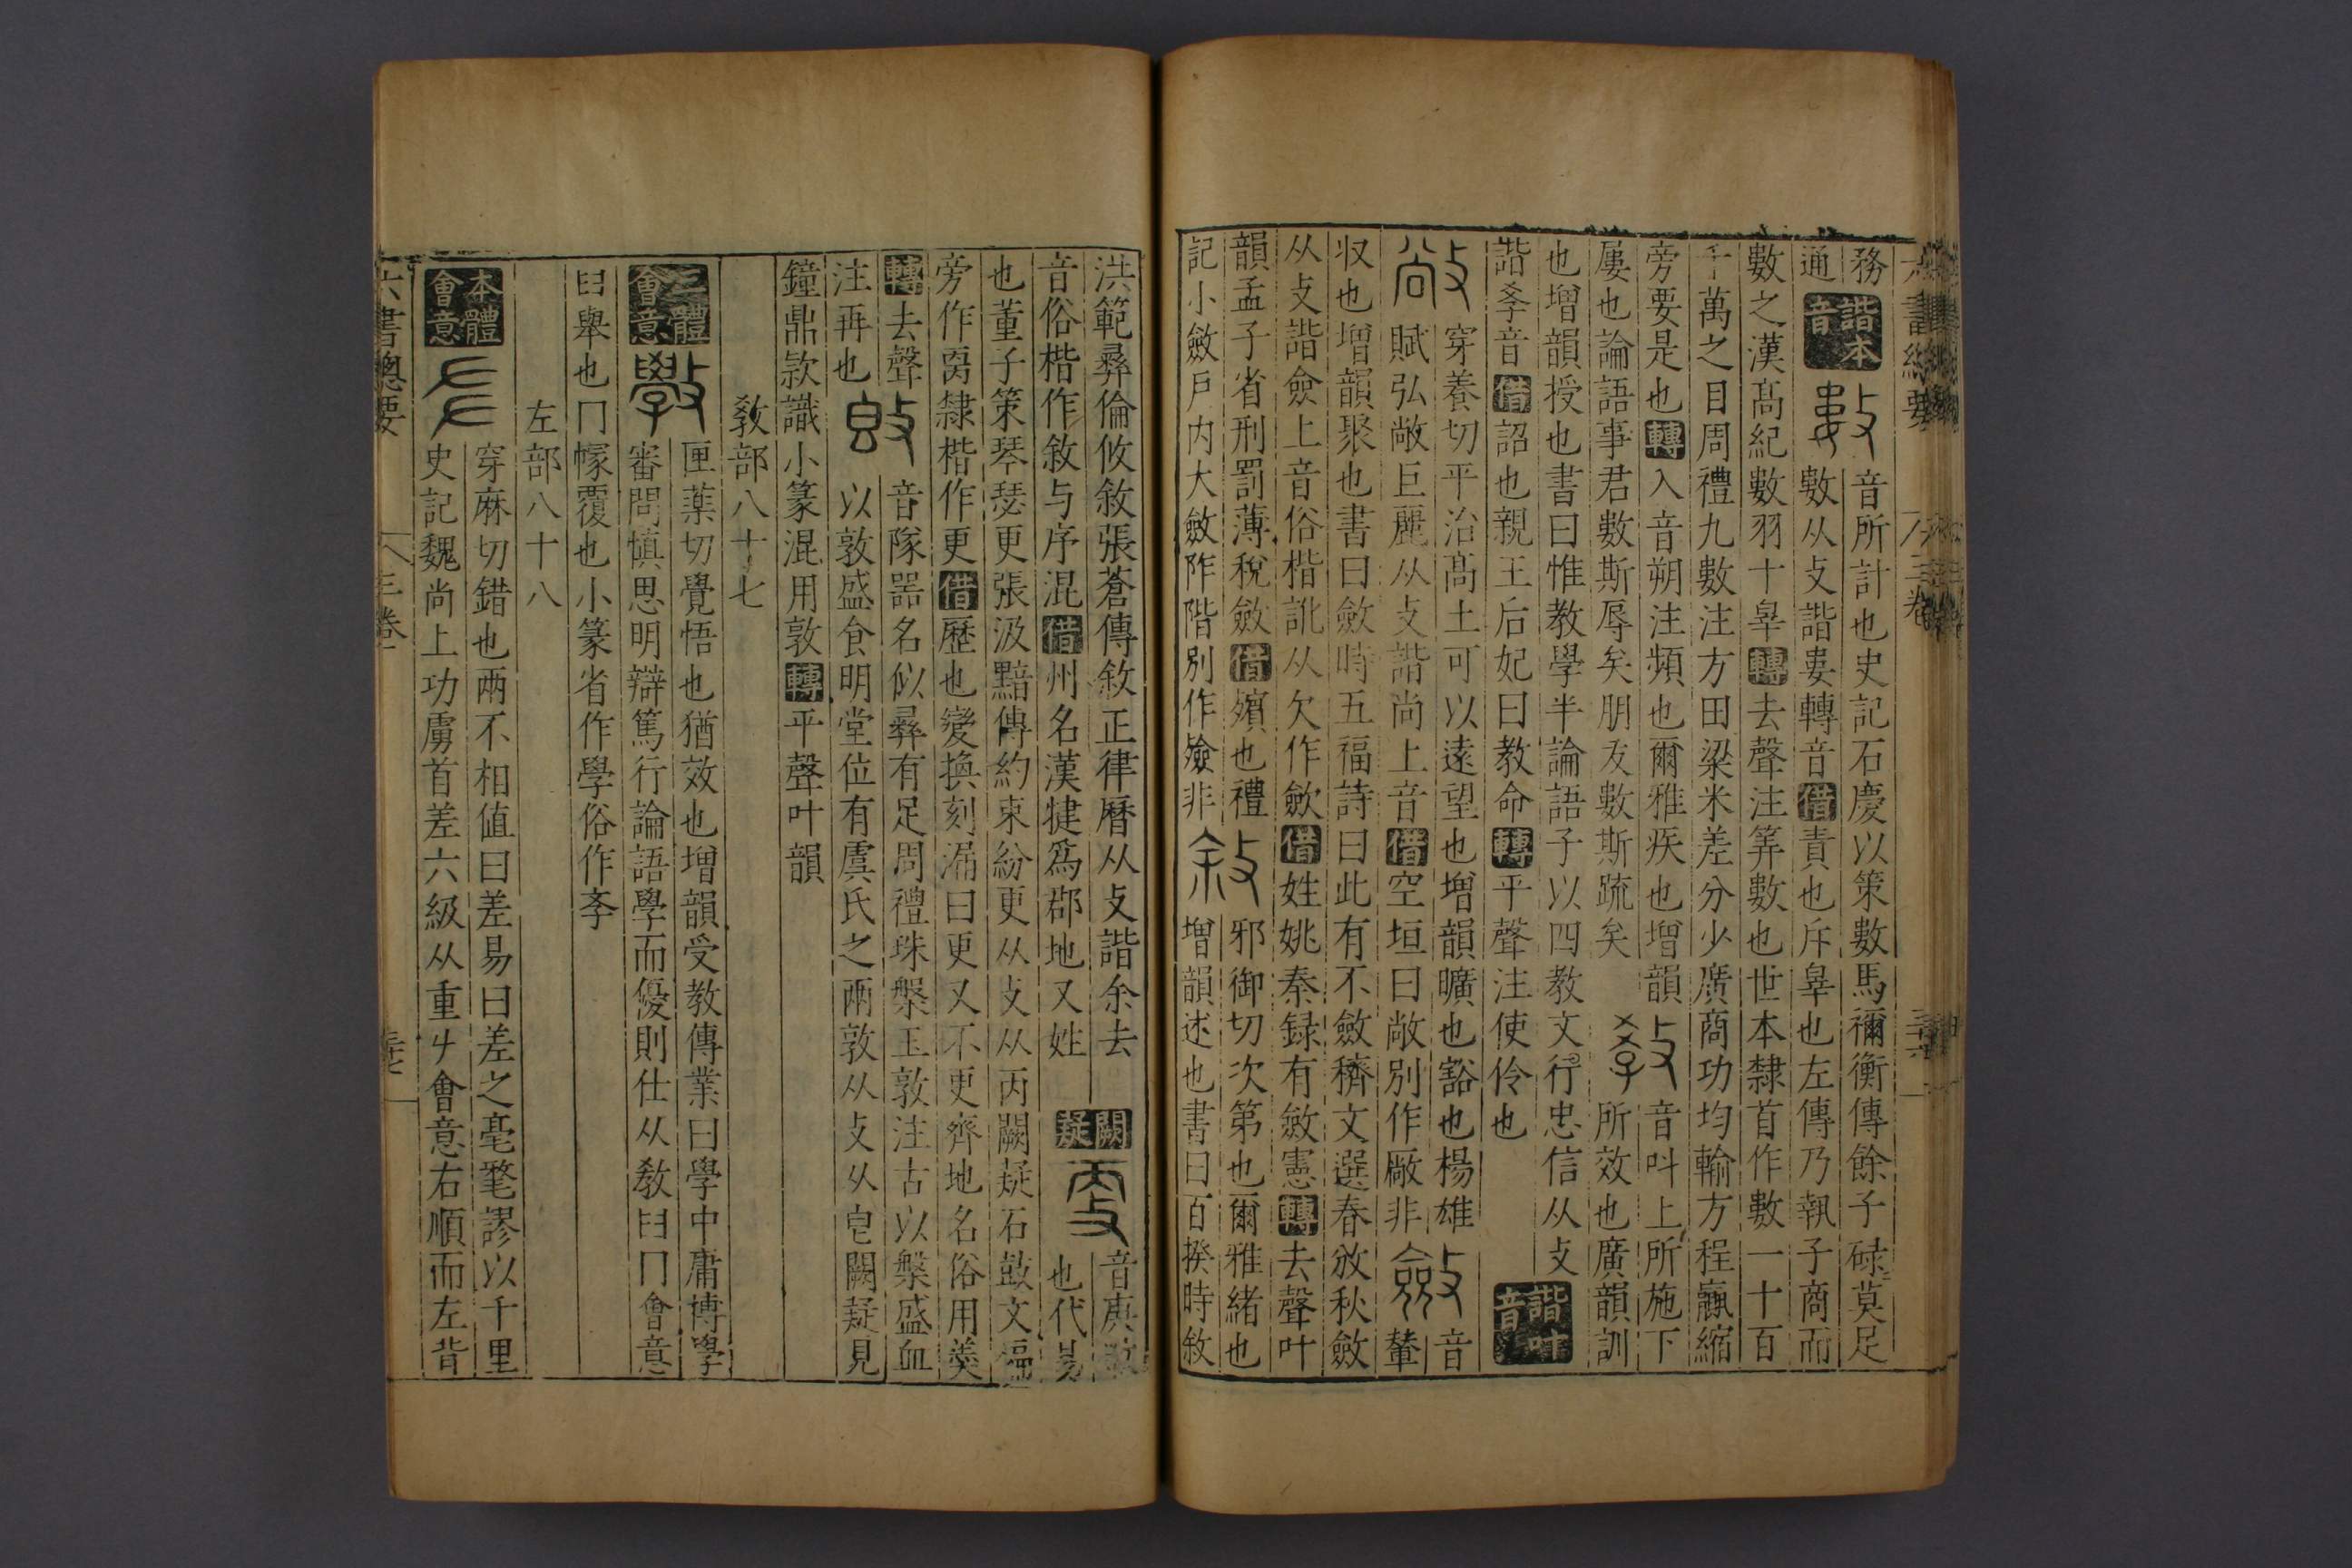 六書總要
三卷
務
通諧本音數音所計也史記石慶以策數馬禰衡傳餘子碌莫足
數从攴諧婁轉音借責也斥辠也左傳乃執子商而
數之漢高紀數羽十辠轉去聲注筭數也世本隸首作數一十百
千萬之目周禮九數注方田粱米差分少廣商功均輸方程贏縮
旁要是也轉入音朔注頻也爾雅疾也增韻
屢也論語事君數斯辱矣朋友數斯疏矣
教音呌上所施下
所效也廣韻訓
也增韻授也書曰惟教學半論語子以四教文行忠信从攴
諧孝音借詔也親王后妃曰教命轉平聲注使伶也
諧叶音
敞穿養切平治高土可以遠望也增韻曠也豁也楊雄
賦弘敞巨麗从攴諧尚上音借空垣曰敞別作厰非
斂音輦
収也增韻聚也書曰斂時五福詩曰此有不斂穧文選春放秋斂
从攴諧僉上音俗楷訛从欠作歛借姓姚秦録有斂憲轉去聲叶
韻孟子省刑罰薄稅斂借殯也禮
記小斂戶內大斂阼階別作殮非
敘邪御切次第也爾雅緒也
增韻述也書曰百揆時敘
洪範彝倫攸敘張蒼傳敘正律曆从攴諧余去
音俗楷作敘与序混借州名漢揵爲郡地又姓
闕疑
更音庚
也代易
也董子策琴瑟更張汲黯傳約束紛更从攴从丙闕疑石鼓文
旁作䰜隸楷作更借歷也變換刻漏曰更又不更齊地名俗用羮
轉去聲注再也
敦音隊器名似彝有足周禮珠槃玉敦注古以槃盛血
以敦盛食明堂位有虞氏之兩敦从攴从皀闕疑見
鐘鼎款識小篆混用敦轉平聲叶韻
敎部八十七
三體會意
斆匣藥切覺悟也猶效也增韻受教傳業曰學中庸博學
審問慎思明辯篤行論語學而優則仕从敎𦥑冂會意
𦥑舉也冂幏覆也小篆省作學俗作斈
左部八十八
本體會意
穿麻切錯也兩不相值曰差易曰差之毫氂謬以千里
史記魏尚上功虜首差六級从重𠂇會意右順而左背
六書總要
三卷